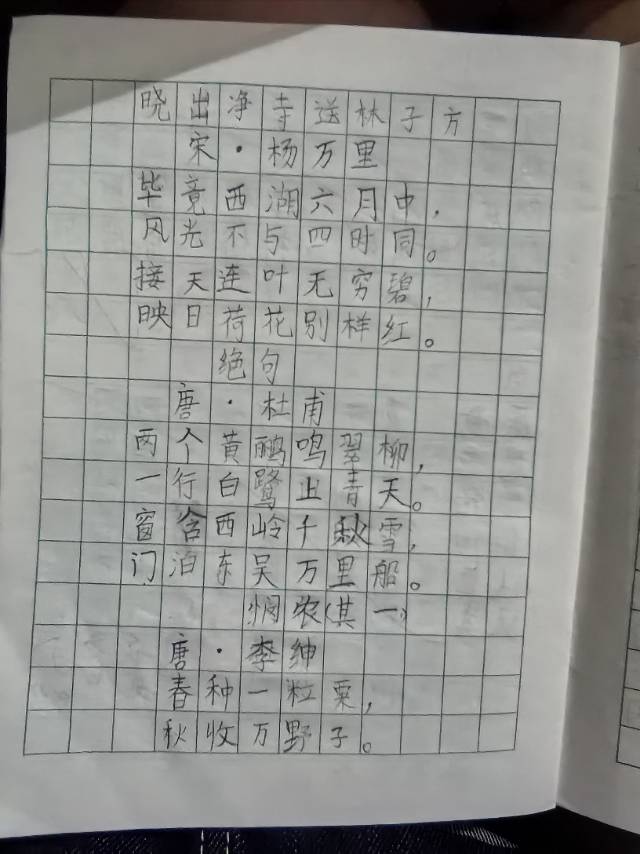 晓出净寺送林子方
宋·杨万里
毕竟西湖六月中，
风光不与四时同。
接天连叶无穷碧，
映日荷花别样红。
绝句
唐·杜甫
两个黄鹂鸣翠柳，
一行白鹭上青天。
窗含西岭千秋雪，
门泊东吴万里船。
悯农(其一)
唐·李绅
春种一粒粟，
秋收万野子。